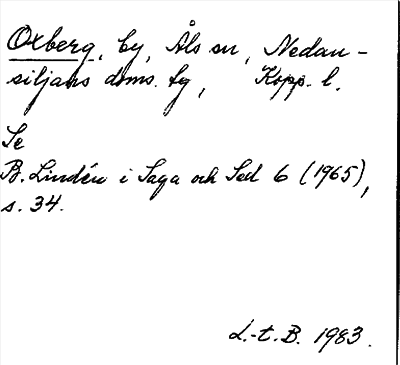 Oxberg, by, Åls sn, Nedan-
siljans doms. tg, Kopp. l.
Se
B. Lindén i Saga och Sed 6 (1965),
s. 34.
L.-t. B. 1983.